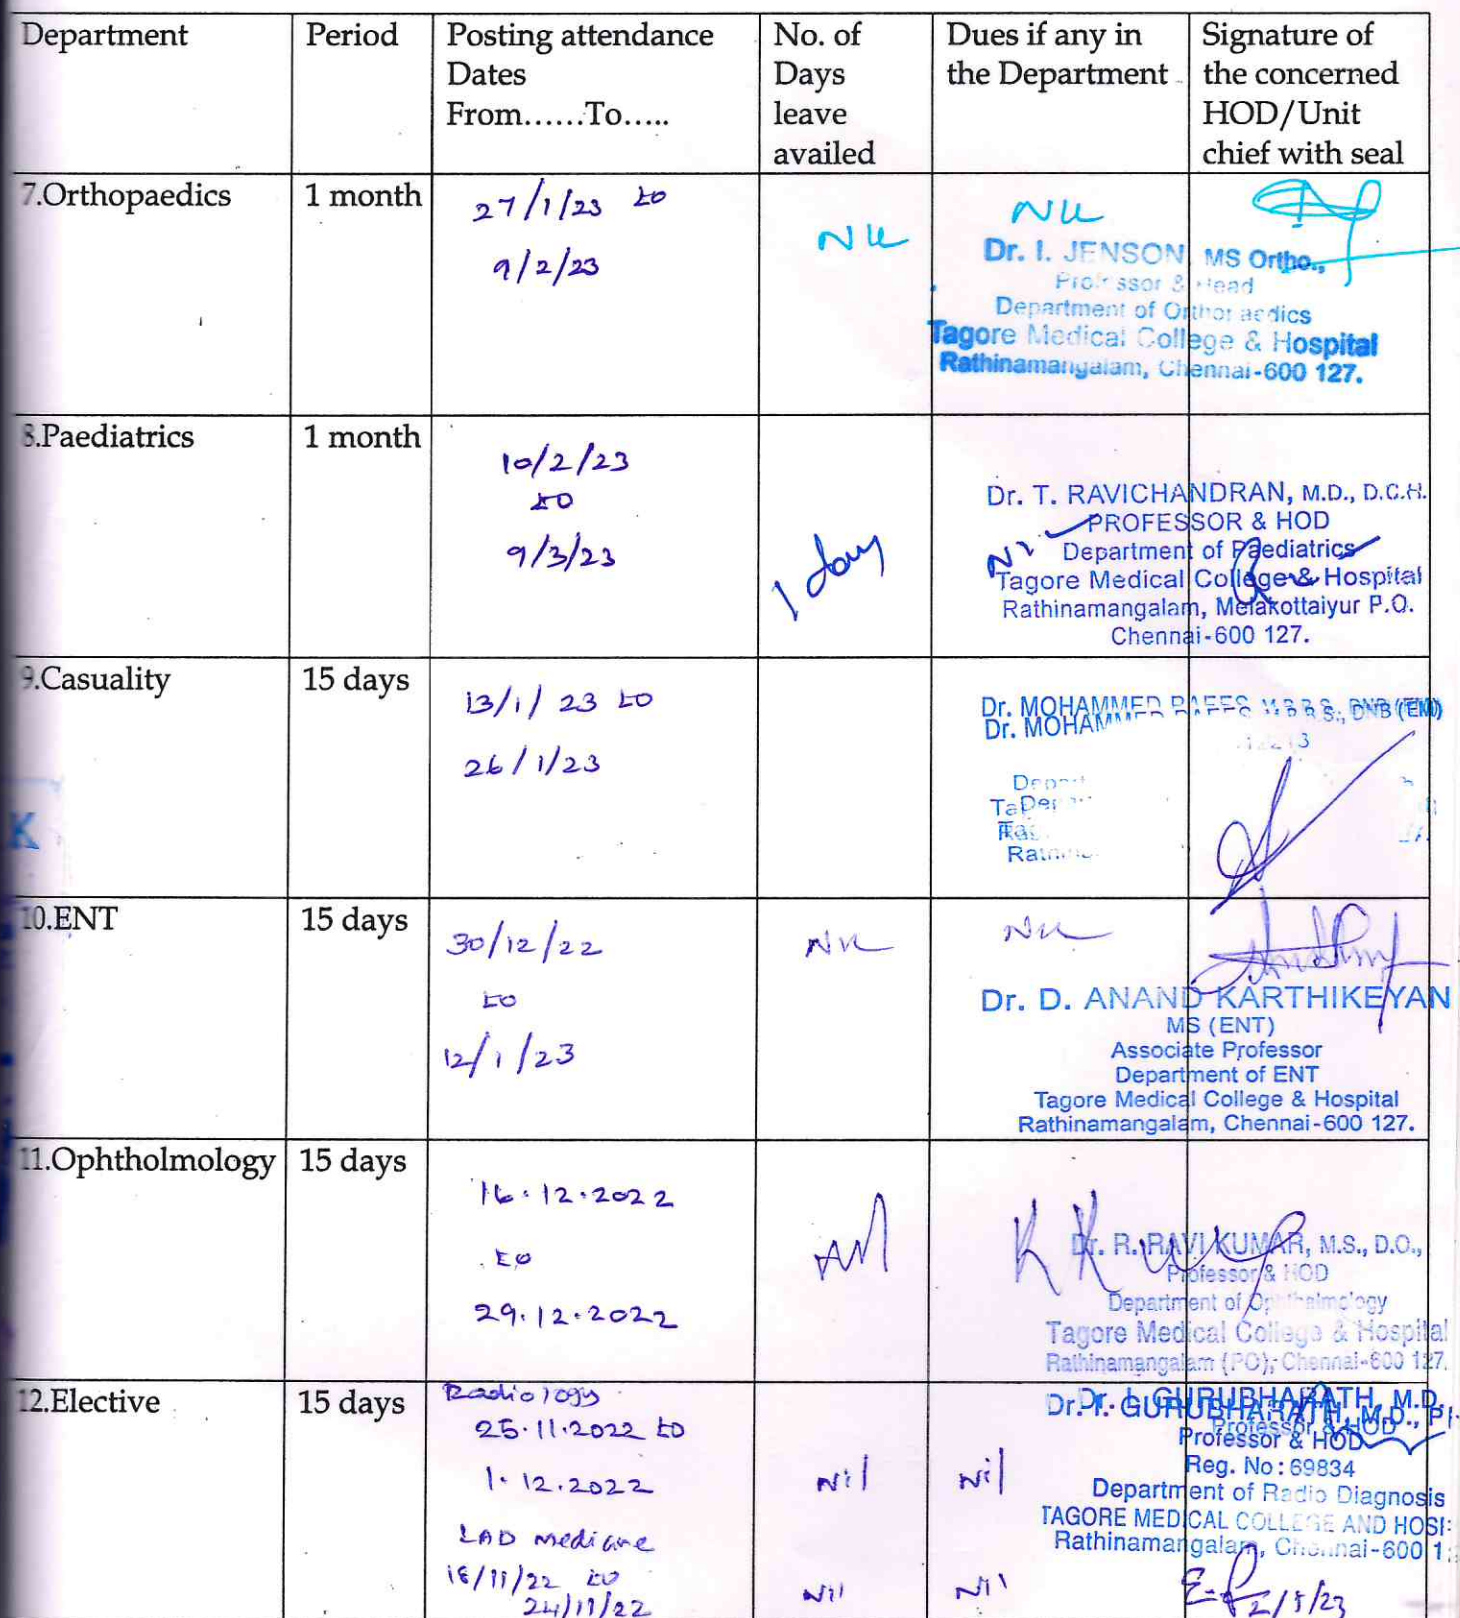 Department Period Posting attendance Dates From......To..... No. of Days leave availed Dues if any in the Department Signature of the concerned HOD/Unit chief with seal
7.Orthopaedics 1 month 27/1/23 to
9/2/23
Nil Nil
Dr. I. JENSON, MS Ortho.,
Professor & Head
Department of Orthopaedics
Tagore Medical College & Hospital
Rathinamangalam, Chennai-600 127.
8.Paediatrics 1 month 10/2/23
to
9/3/23
1 day
Nil
Dr. T. RAVICHANDRAN, M.D., D.C.H.
PROFESSOR & HOD
Department of Paediatrics
Tagore Medical College & Hospital
Rathinamangalam, Melakottaiyur P.O.
Chennai-600 127.
9.Casuality 15 days 13/1/23 to
26/1/23
Dr. MOHAMMED RAFFS M.B.B.S., DNB (EM)
Dr. MOHAMMED
10.ENT 15 days 30/12/22
to
12/1/23
Nil Nil
Dr. D. ANAND KARTHIKEYAN
MS (ENT)
Associate Professor
Department of ENT
Tagore Medical College & Hospital
Rathinamangalam, Chennai-600 127.
11.Ophtholmology 15 days 16.12.2022
to
29.12.2022
Dr. R. RAVI KUMAR, M.S., D.O.,
Professor & HOD
Department of Ophthalmology
Tagore Medical College & Hospital
Rathinamangalam (PO), Chennai-600 127.
12.Elective 15 days Radiology
25.11.2022 to
1.12.2022
Nil Nil
Dr. I. GURUBHARATH, M.D.
Dr. I. GURUBHARATH, M.D., P
Professor & HOD
Professor & HOD
Reg. No: 69834
Department of Radio Diagnosis
TAGORE MEDICAL COLLEGE AND HOSP
Rathinamangalam, Chennai-600 1
LAD medicine
18/11/22 to
24/11/22
Nil Nil
2/5/23